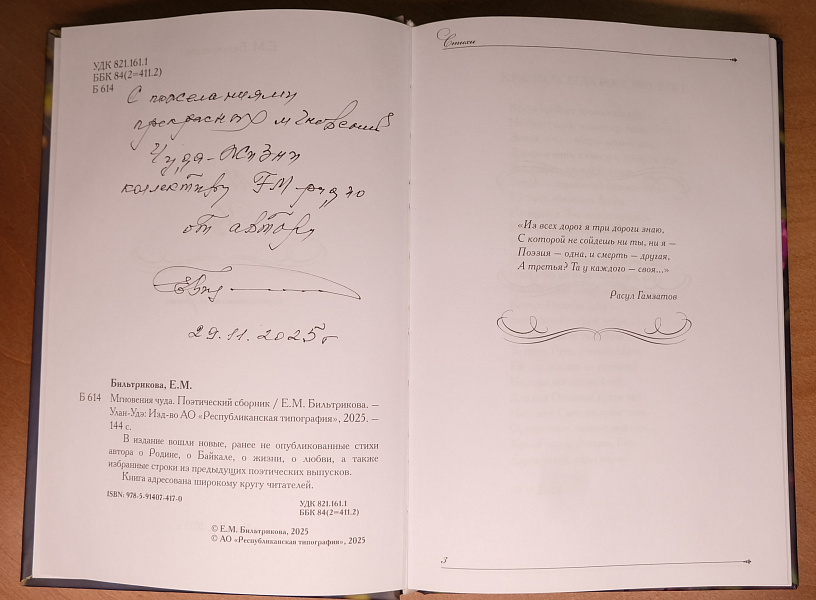 УДК 821.161.1
ББК 84(2=411.2)
Б 614
С пожеланиями
прекрасных мгновений
Чуда-Жизни
коллективу FM-радио
от автора
29.11.2025г
Бильтрикова, Е.М.
Б 614 Мгновения чуда. Поэтический сборник / Е.М. Бильтрикова. —
Улан-Удэ: Изд-во АО «Республиканская типография», 2025. —
144 с.
В издание вошли новые, ранее не опубликованные стихи
автора о Родине, о Байкале, о жизни, о любви, а также
избранные строки из предыдущих поэтических выпусков.
Книга адресована широкому кругу читателей.
ISBN: 978-5-91407-417-0
УДК 821.161.1
ББК 84(2=411.2)
© Е.М. Бильтрикова, 2025
© АО «Республиканская типография», 2025
Стихи
«Из всех дорог я три дороги знаю,
С которой не сойдешь ни ты, ни я —
Поэзия — одна, и смерть — другая,
А третья? Та у каждого — своя...»
Расул Гамзатов
3